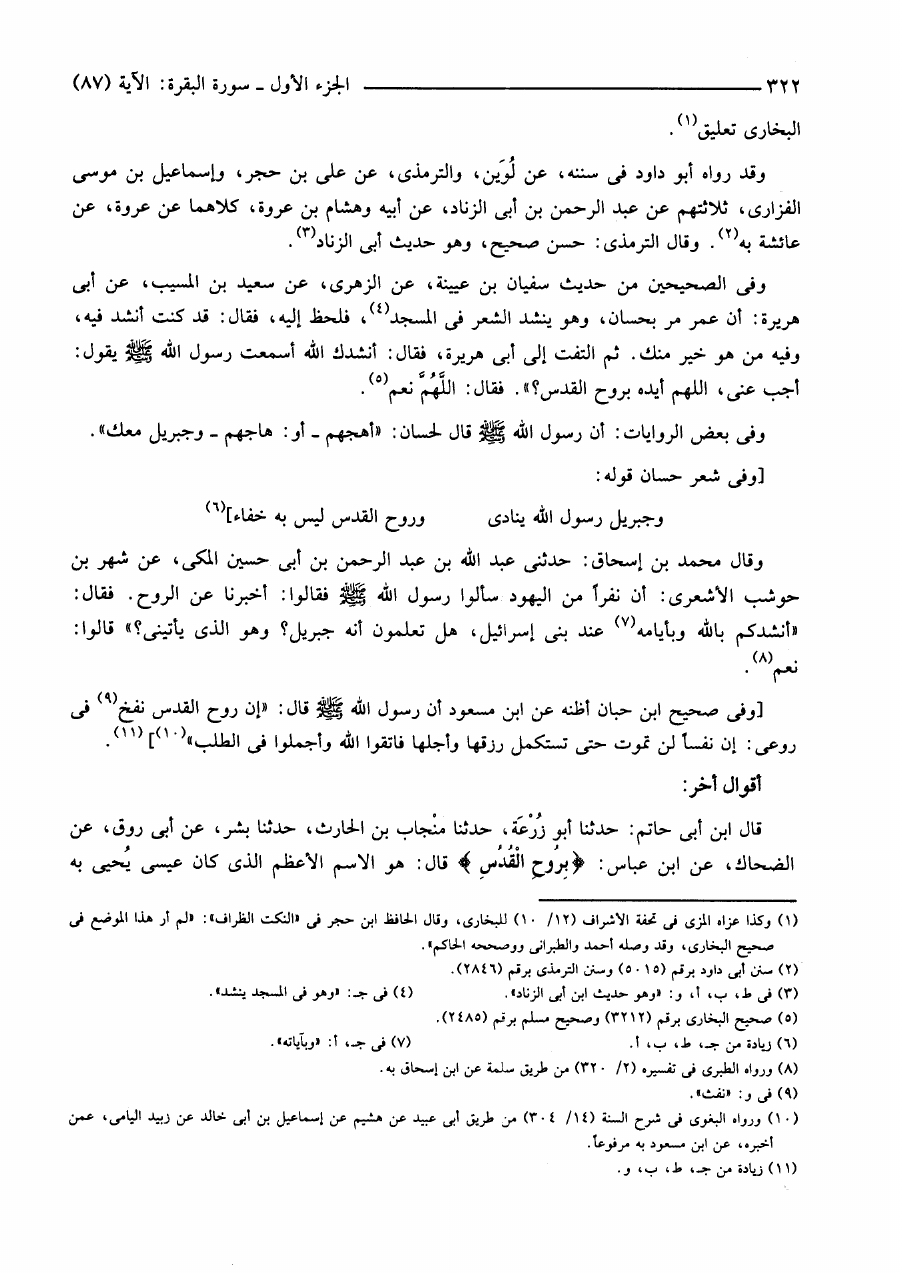 ٣٢٢ ــــــــــــــــــــ الجزء الأول ـ سورة البقرة: الآية (٨٧)
البخارى تعليق(١).
وقد رواه أبو داود فى سننه، عن لُوَين، والترمذى، عن على بن حجر، وإسماعيل بن موسى
الفزارى، ثلاثتهم عن عبد الرحمن بن أبى الزناد، عن أبيه وهشام بن عروة، كلاهما عن عروة، عن
عائشة به(٢). وقال الترمذى: حسن صحيح، وهو حديث أبى الزناد(٣).
وفى الصحيحين من حديث سفيان بن عيينة، عن الزهرى، عن سعيد بن المسيب، عن أبى
هريرة: أن عمر مر بحسان، وهو ينشد الشعر فى المسجد(٤)، فلحظ إليه، فقال: قد كنت أنشد فيه،
وفيه من هو خير منك. ثم التفت إلى أبى هريرة، فقال: أنشدك الله أسمعت رسول الله ﷺ يقول:
أجب عنى، اللهم أيده بروح القدس؟». فقال: اللَّهُمَّ نعم(٥).
وفى بعض الروايات: أن رسول الله ﷺ قال لحسان: «أهجهم ـ أو: هاجهم ـ وجبريل معك».
[وفى شعر حسان قوله:
وجبريل رسول الله ينادى وروح القدس ليس به خفاء](٦)
وقال محمد بن إسحاق: حدثنى عبد الله بن عبد الرحمن بن أبى حسين المكى، عن شهر بن
حوشب الأشعرى: أن نفراً من اليهود سألوا رسول الله ﷺ فقالوا: أخبرنا عن الروح. فقال:
«أنشدكم بالله وبأيامه(٧) عند بنى إسرائيل، هل تعلمون أنه جبريل؟ وهو الذى يأتينى؟» قالوا:
نعم(٨).
[وفى صحيح ابن حبان أظنه عن ابن مسعود أن رسول الله ﷺ قال: «إن روح القدس نفخ(٩) فى
روعى: إن نفساً لن تموت حتى تستكمل رزقها وأجلها فاتقوا الله وأجملوا فى الطلب»(١٠)](١١).
أقوال أخر:
قال ابن أبى حاتم: حدثنا أبو زُرْعَة، حدثنا منْجاب بن الحارث، حدثنا بشر، عن أبى روق، عن
الضحاك، عن ابن عباس: ﴿بِرُوحِ الْقُدُسِ﴾ قال: هو الاسم الأعظم الذى كان عيسى يُحيى به
(١) وكذا عزاه المزى فى تحفة الأشراف (١٢/ ١٠) للبخارى، وقال الحافظ ابن حجر فى «النكت الظراف»: «لم أر هذا الموضع فى
صحيح البخارى، وقد وصله أحمد والطبرانى ووصححه الحاكم».
(٢) سنن أبى داود برقم (٥٠١٥) وسنن الترمذى برقم (٢٨٤٦).
(٣) فى ط، ب، أ، و: «وهو حديث ابن أبى الزناد». (٤) فى جـ: «وهو فى المسجد ينشد».
(٥) صحيح البخارى برقم (٣٢١٢) وصحيح مسلم برقم (٢٤٨٥).
(٦) زيادة من جـ، ط، ب، أ. (٧) فى جـ، أ: «وبآياته».
(٨) ورواه الطبرى فى تفسيره (٢/ ٣٢٠) من طريق سلمة عن ابن إسحاق به.
(٩) فى و: «نفث».
(١٠) ورواه البغوى فى شرح السنة (١٤/ ٣٠٤) من طريق أبى عبيد عن هشيم عن إسماعيل بن أبى خالد عن زبيد اليامى، عمن
أخبره، عن ابن مسعود به مرفوعاً.
(١١) زيادة من جـ، ط، ب، و.